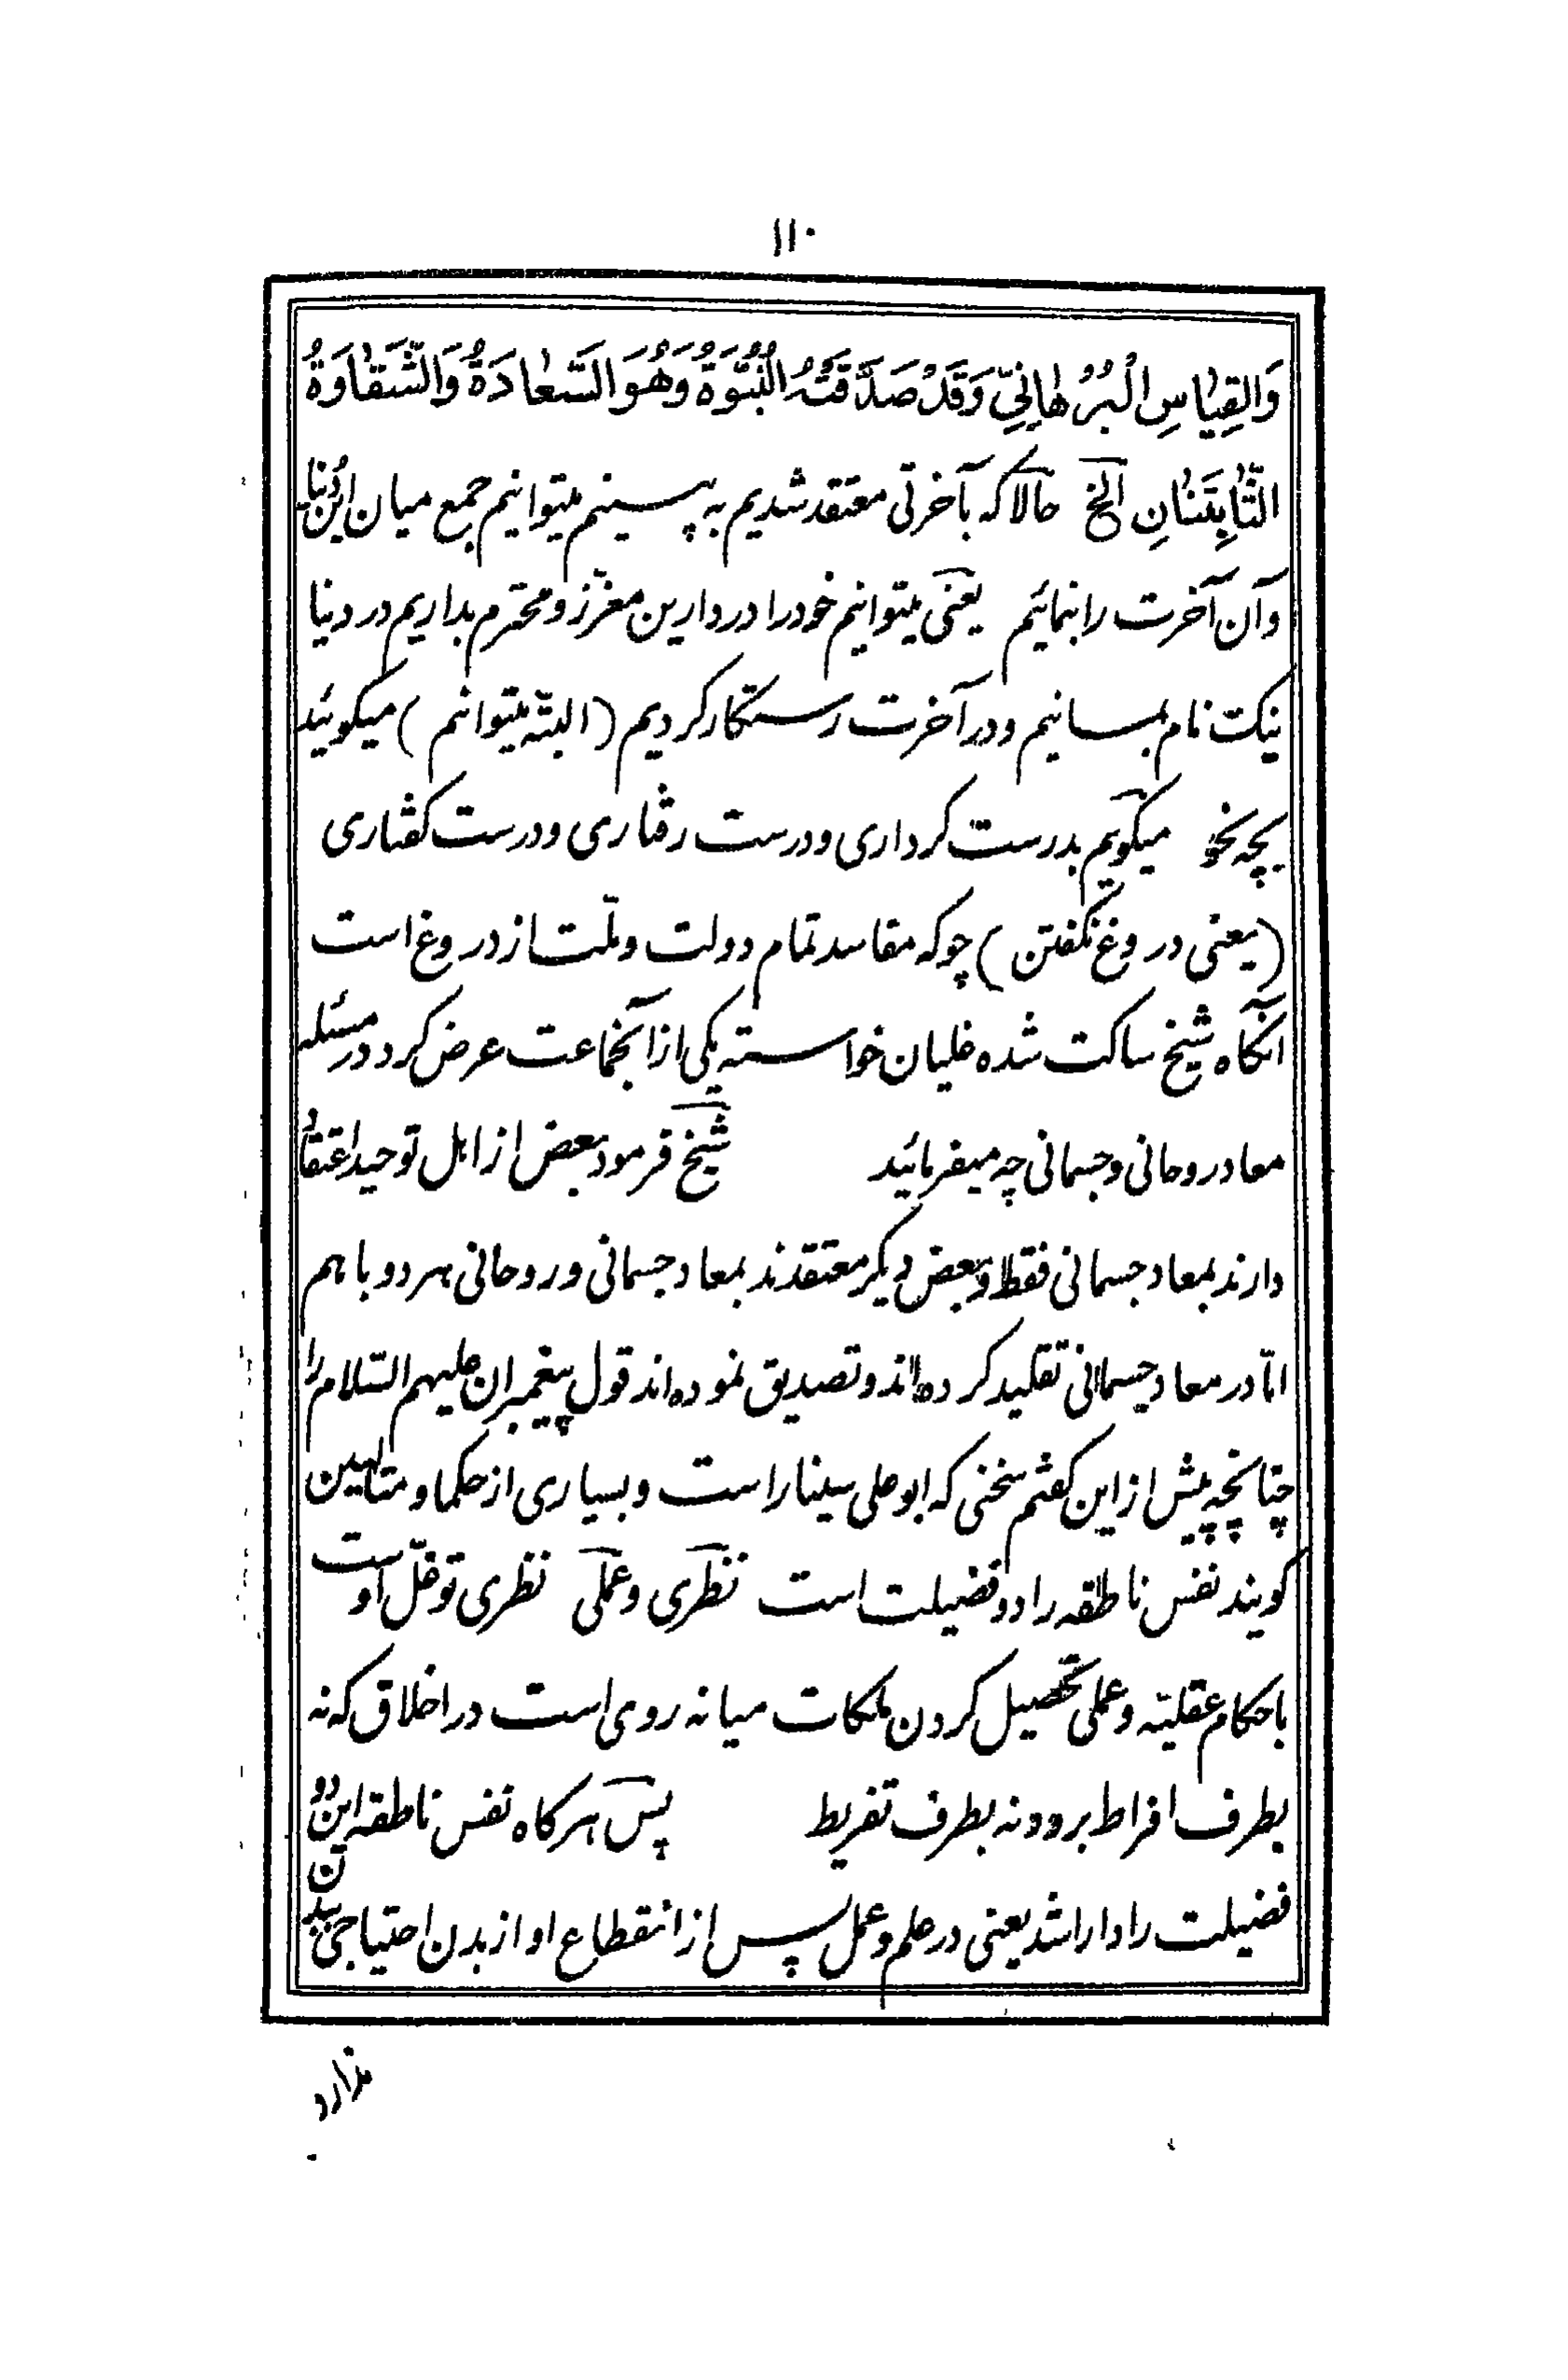 ١١٠
وَالقِیٰاسِ الْبُرْهٰانِیِّ وَقَدْ صَدَّقَتْهُ النُّبُوَّةُ وَهُوَ السَّعٰادَةُ وَالشَّقٰاوَةُ
الثّٰابِتَتٰانِ الخ حالا که بآخرتی معتقد شدیم به پسینیم میتوانیم جمع میان این دنیا
و آن آخرت را بنمائیم یعنی میتوانیم خود را در دارین معزّز و محترم بداریم در دنیا
نیک نام بمانیم و در آخرت رستکار کردیم (البتّه میتوانیم) میکوئید
بچه نحو میکویم بدرست کرداری و درست رفتاری و درست کفتاری
(یعنی دروغ نکفتن) چو که مفاسد تمام دولت و ملّت از دروغ است
آنکاه شیخ ساکت شده غلیان خواسته یکی از آنجماعت عرض کرد در مسئله
معاد روحانی و جسمانی چه میفرمائید شیخ فرمود بعض از اهل توحید اعتقاد
دارند بمعاد جسمانی فقط و بعض دیکر معتقدند بمعاد جسمانی و روحانی هر دو با هم
امّا در معاد جسمانی تقلید کرده‌اند و تصدیق نموده‌اند قول پیغمبران علیهم السّلام را
چنانچه پیش از این کفتم سخنی که ابو علی سینا راست و بسیاری از حکما و متالهین
کویند نفس ناطقه را دو فضیلت است نظری و عملی نظری توغّل اوست
باحکام عقلیّه و عملی تحصیل کردن ملکات میانه روی است در اخلاق که نه
بطرف افراط برود و نه بطرف تفریط پس هر کاه نفس ناطقه این دو
فضیلت را دارا شد یعنی در علم و عمل پس از انقطاع او از بدن احتیاجی ببدن
ندارد